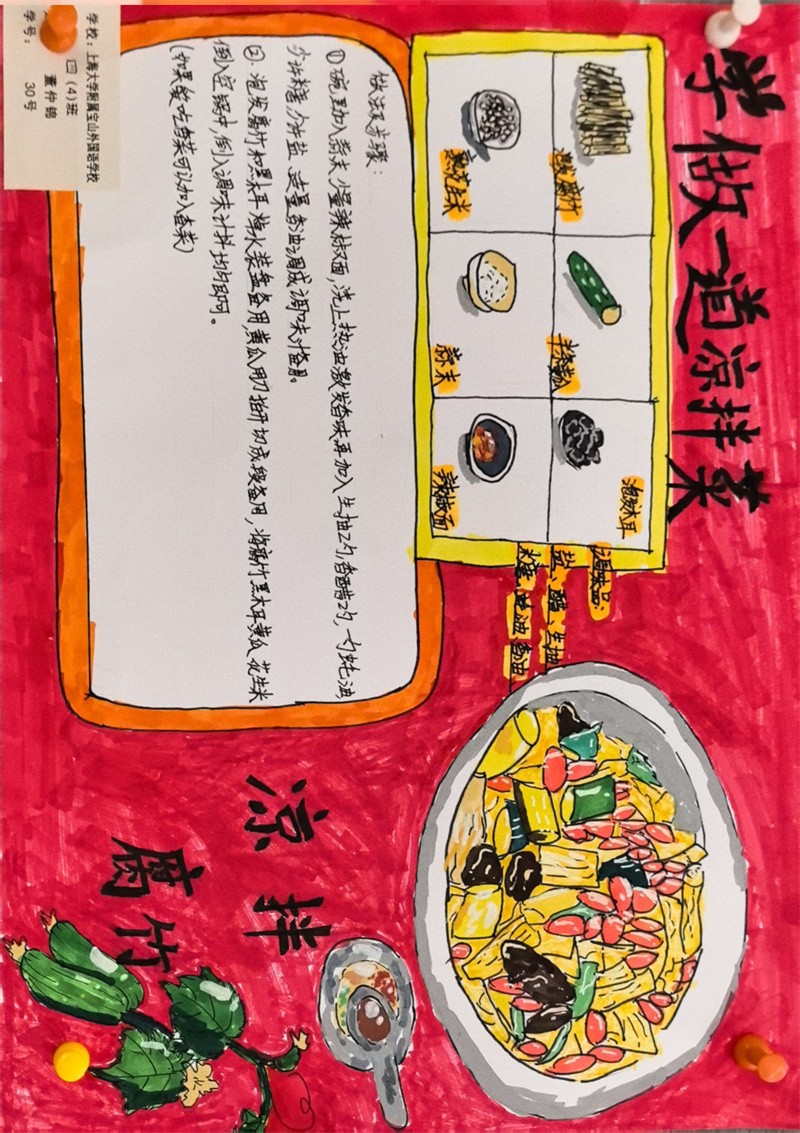 学做一道凉拌菜
激发腐竹
半条黄瓜
泡发木耳
熟花生米
蒜末
辣椒面
调味品:
盐、醋、生抽
米糖、蚝油、香油
做法及步骤:
① 碗里加入蒜末,少量辣椒面,浇上热油激发香味再加入生抽2勺,香醋2勺,一勺蚝油
少许糖,少许盐,适量香油调成调味汁备用。
② 泡发腐竹和黑木耳焯水装盘备用,黄瓜用刀拍开切成段备用,将腐竹黑木耳黄瓜花生米
倒入空锅中,倒入调味汁拌均匀即可。
(如果爱吃香菜可以加入香菜)
凉拌
腐竹
学校:上海大学附属宝山外国语学校
四(4)班
董仲
学号: 30号